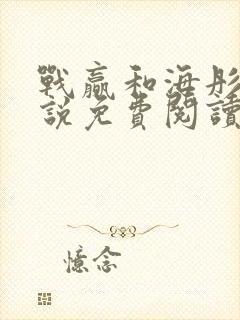 戰贏和海彤
說免費閱讀
憶念